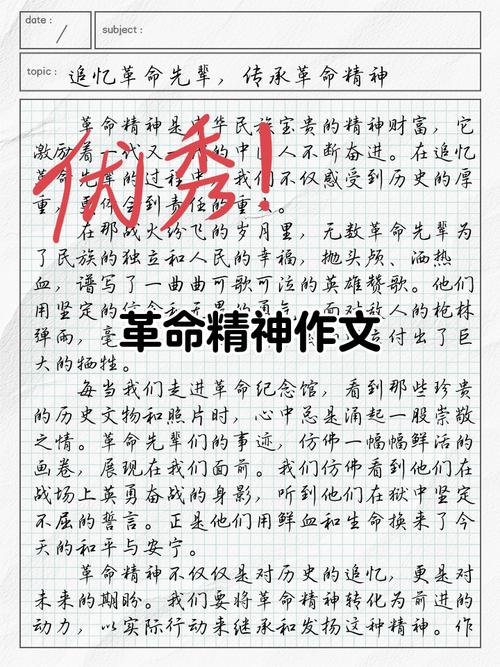 date :
subject :
topic : 追忆革命先辈，传承革命精神
革命精神是中华民族宝贵的精神财富，它
激励着一代又一代的中国人不断奋进。在追忆
革命先辈的过程中，我们不仅感受到历史的厚
重，更体会到责任的重大。
优秀！
在那战火纷飞的岁月里，无数革命先辈为
了民族的独立和人民的幸福，抛头颅、洒热
血，谱写了一曲曲可歌可泣的英雄赞歌。他们
用坚定的信念和无畏的勇气，面对敌人的枪林
弹雨，毫
付出了巨
革命精神作文
大的牺牲。
每当我们走进革命纪念馆，看到那些珍贵
的历史文物和照片时，心中总是涌起一股崇敬
之情。革命先辈们的事迹，仿佛一幅幅鲜活的
画卷，展现在我们面前。我们仿佛看到他们在
战场上英勇奋战的身影，听到他们在狱中坚定
不屈的誓言。正是他们用鲜血和生命换来了今
天的和平与安宁。
革命精神不仅仅是对历史的追忆，更是对
未来的期盼。我们要将革命精神转化为前进的
动力，以实际行动来继承和发扬这种精神。作